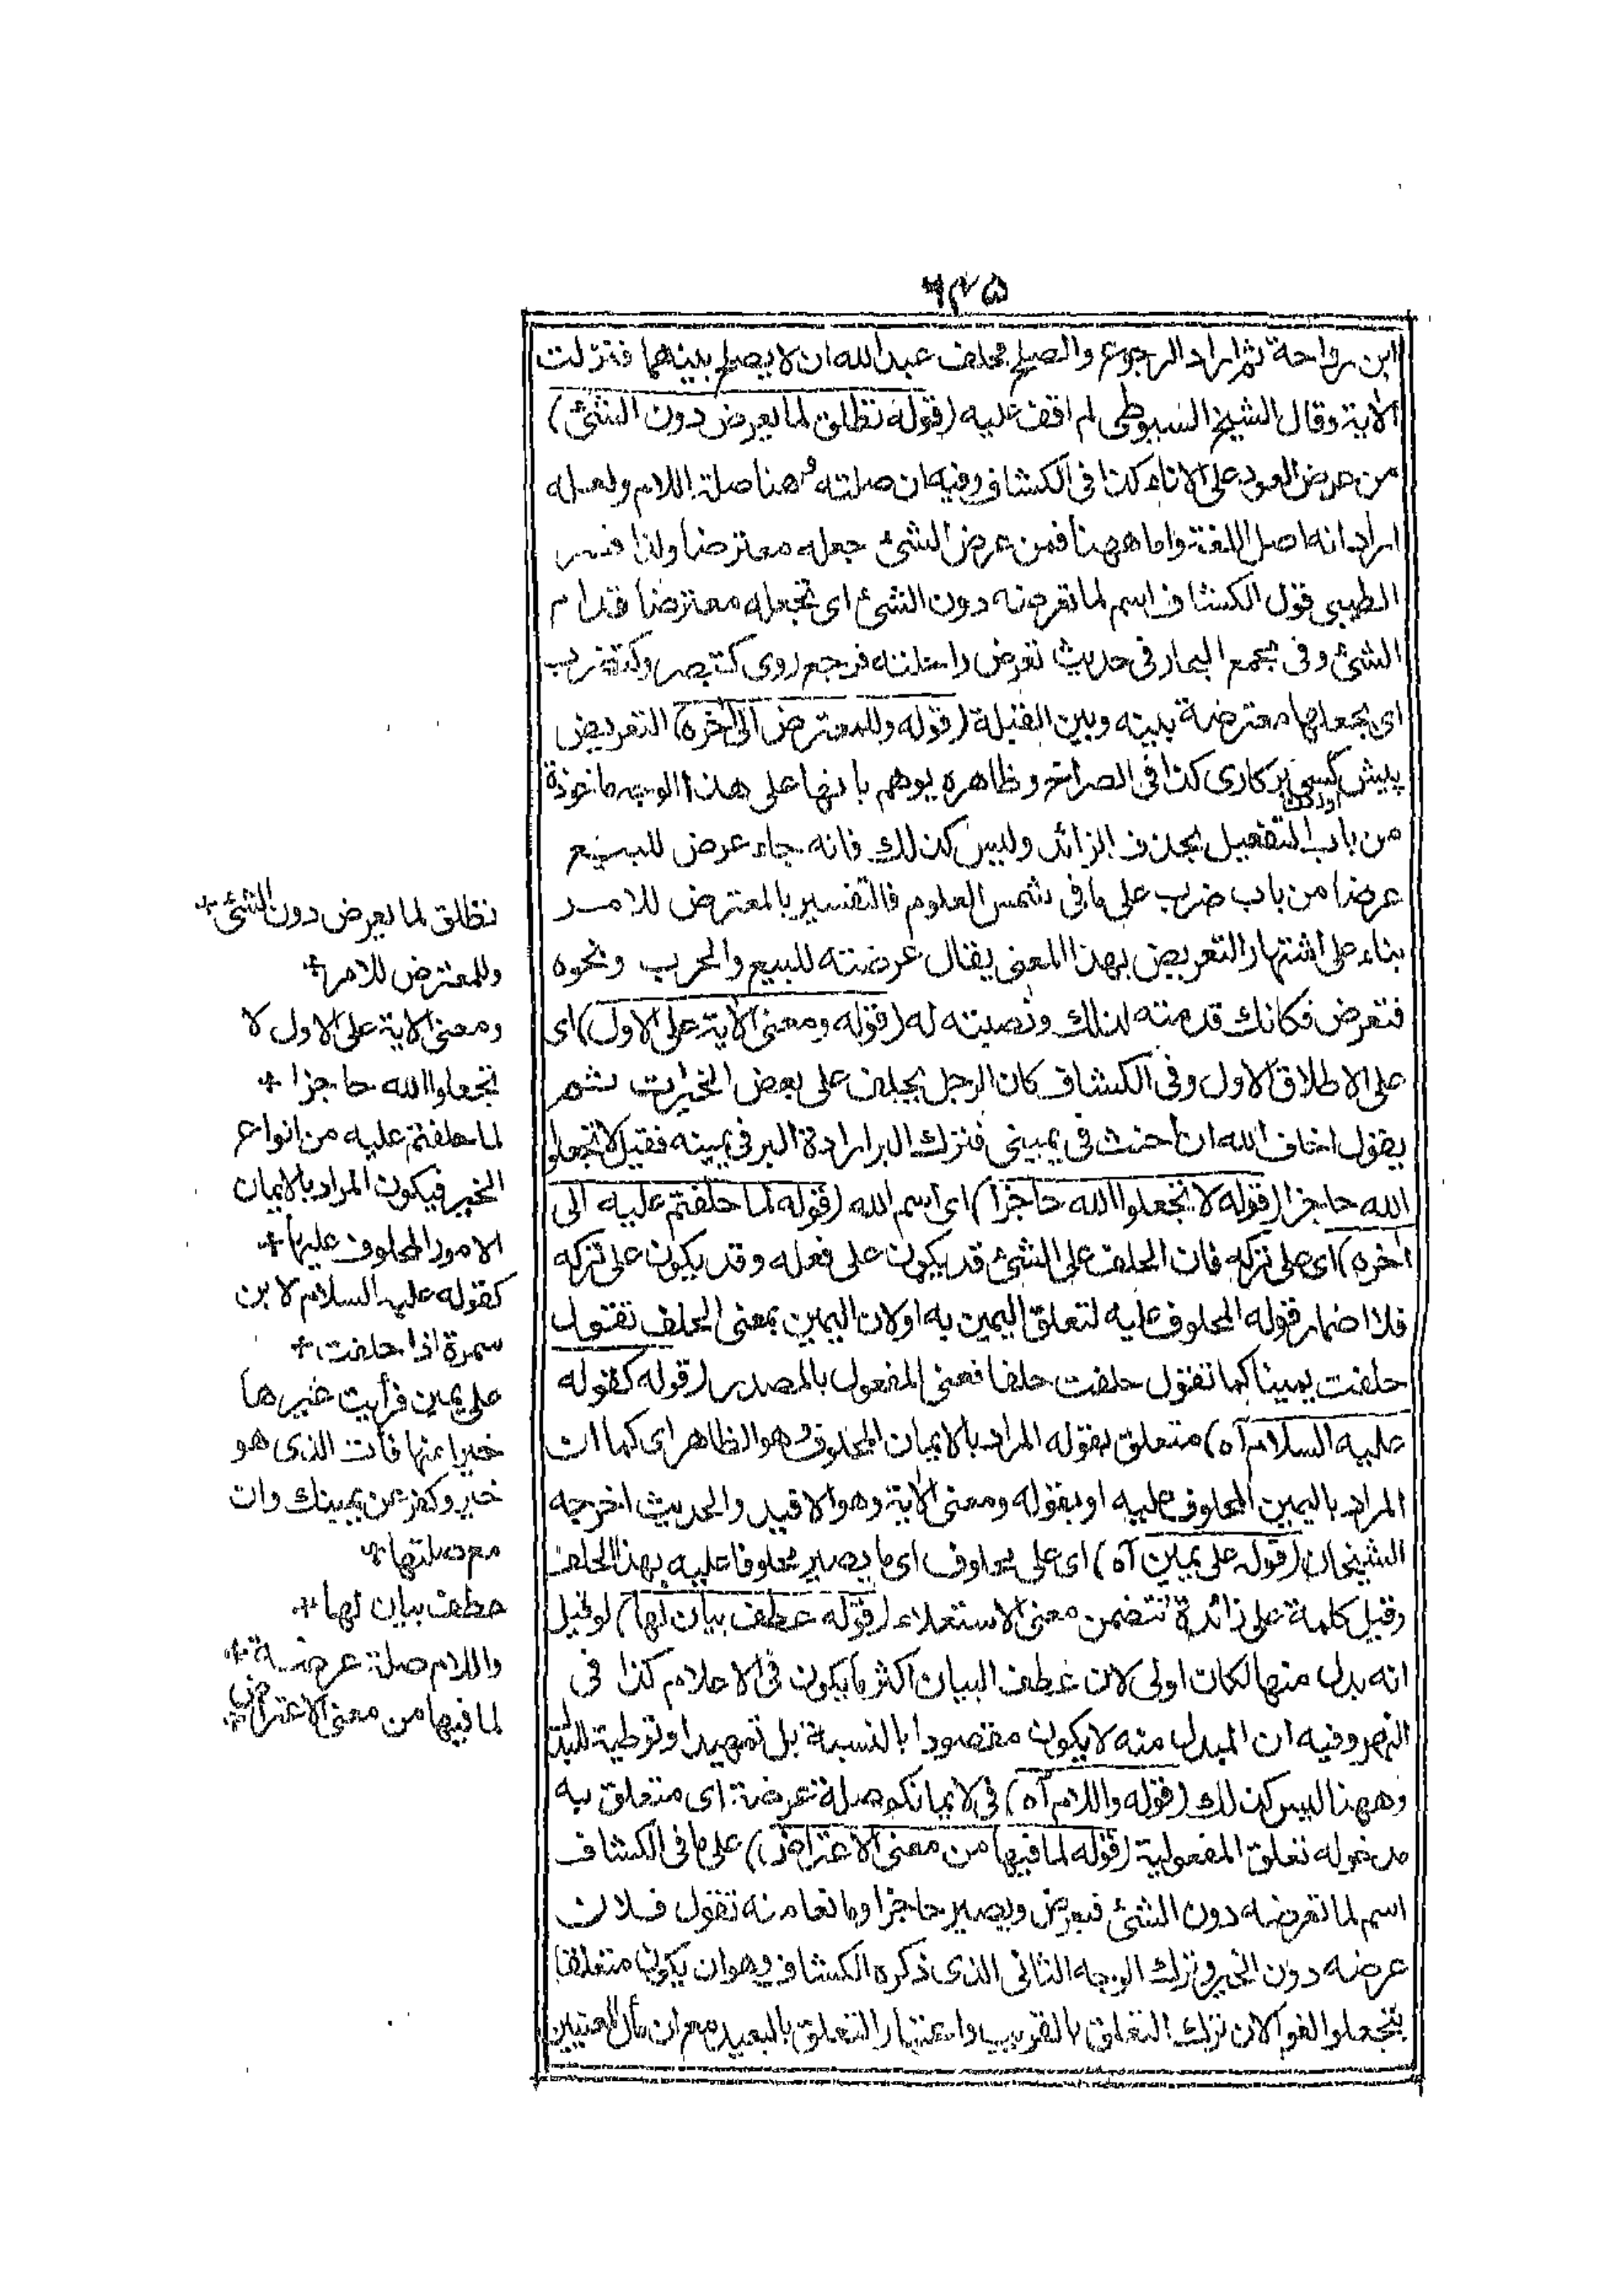 ٦٤٥
ابن رواحة ثم اراد الرجوع والصلح فحلف عبد الله ان لا يصلح بينهما فنزلت
الآية وقال الشيخ السيوطى لم اقف عليه (قوله تطلق لما يعرض دون الشئ)
من عرض العود على الاناء كذا فى الكشاف وفيه ان صلته وهنا صلة اللام ولعله
اراد انه اصل اللغة واما ههنا فمن عرض الشئ جعله معترضا ولذا فسر
الطيبى قول الكشاف اسم لما تعرضه دون الشئ اى تجعله معترضا قدام
الشئ وفى مجمع البحار فى حديث تعرض راحلته فرجع روى كتنصر وكتضرب
اى يجعلها معترضة بينه وبين القبلة (قوله وللمعترض الى آخره) التعريض
پيش كسى بركارى كذا فى الصراح وظاهره يوهم بانها على هذا الوجه ماخوذة
آوردن
من باب التفعيل بحذف الزائد وليس كذلك فانه جاء عرض للبيع
عرضا من باب ضرب على ما فى شمس العلوم فالتفسير بالمعترض للامر
بناء على اشتهار التعريض بهذا المعنى يقال عرضته للبيع والحرب ونحوه
فتعرض فكانك قدمته لذلك ونصبته له (قوله ومعنى الآية على الاول) اى
على الاطلاق الاول وفى الكشاف كان الرجل يحلف على بعض الخيرات ثم
يقول اخاف الله ان احنث فى يمينى فترك البر ارادة البر فى يمينه فقيل لا تجعلوا
الله حاجزا (قوله لا تجعلوا الله حاجزا) اى اسم الله (قوله لما حلفتم عليه الى
آخره) اى على تركه فان الحلف على الشئ قد يكون على فعله وقد يكون على تركه
فلا اضمار قوله المحلوف عليه لتعلق اليمين به او لان اليمين بمعنى الحلف تقول
حلفت يمينا كما تقول حلفت حلفا فمعنى المفعول بالمصدر (قوله كقوله
عليه السلام آه) متعلق بقوله المراد بالايمان المحلوف وهو الظاهر اى كما ان
المراد باليمين المحلوف عليه او بقوله ومعنى الآية وهو الاقيد والحديث اخرجه
الشيخان (قوله على يمين آه) اى على محلوف اى ما يصير محلوفا عليه بهذا الحلف
وقيل كلمة على زائدة تتضمن معنى الاستعلاء (قوله عطف بيان لها) لو قيل
انه بدل منها لكان اولى لان عطف البيان اكثر ما يكون فى الاعلام كذا فى
النهر وفيه ان المبدل منه لا يكون مقصودا بالنسبة بل تمهيدا وتوطية للبدل
وههنا ليس كذلك (قوله واللام آه) فى لايمانكم صلة عرضة اى متعلق به
مدخوله تعلق المفعولية (قوله لما فيها من معنى الاعتراض) على ما فى الكشاف
اسم لما تعرضه دون الشئ فيعرض ويصير حاجزا وما نعا منه تقول فلان
عرضه دون الخير وترك الوجه الثانى الذى ذكره الكشاف وهو ان يكون متعلقا
بتجعلوا لغوا لان ترك التعلق بالقريب واعتبار التعلق بالبعيد مع ان مآل المعنيين
تطلق لما يعرض دون الشئ +
وللمعترض للامر +
ومعنى الآية على الاول لا
تجعلوا الله حاجزا +
لما حلفتم عليه من انواع
الخير فيكون المراد بالايمان
الامور المحلوف عليها +
كقوله عليه السلام لابن
سمرة اذا حلفت +
على يمين فرأيت غيرها
خيرا منها فأت الذى هو
خير وكفر عن يمينك وان
مع صلتها +
عطف بيان لها +
واللام صلة عرضة +
لما فيها من معنى الاعتراض +